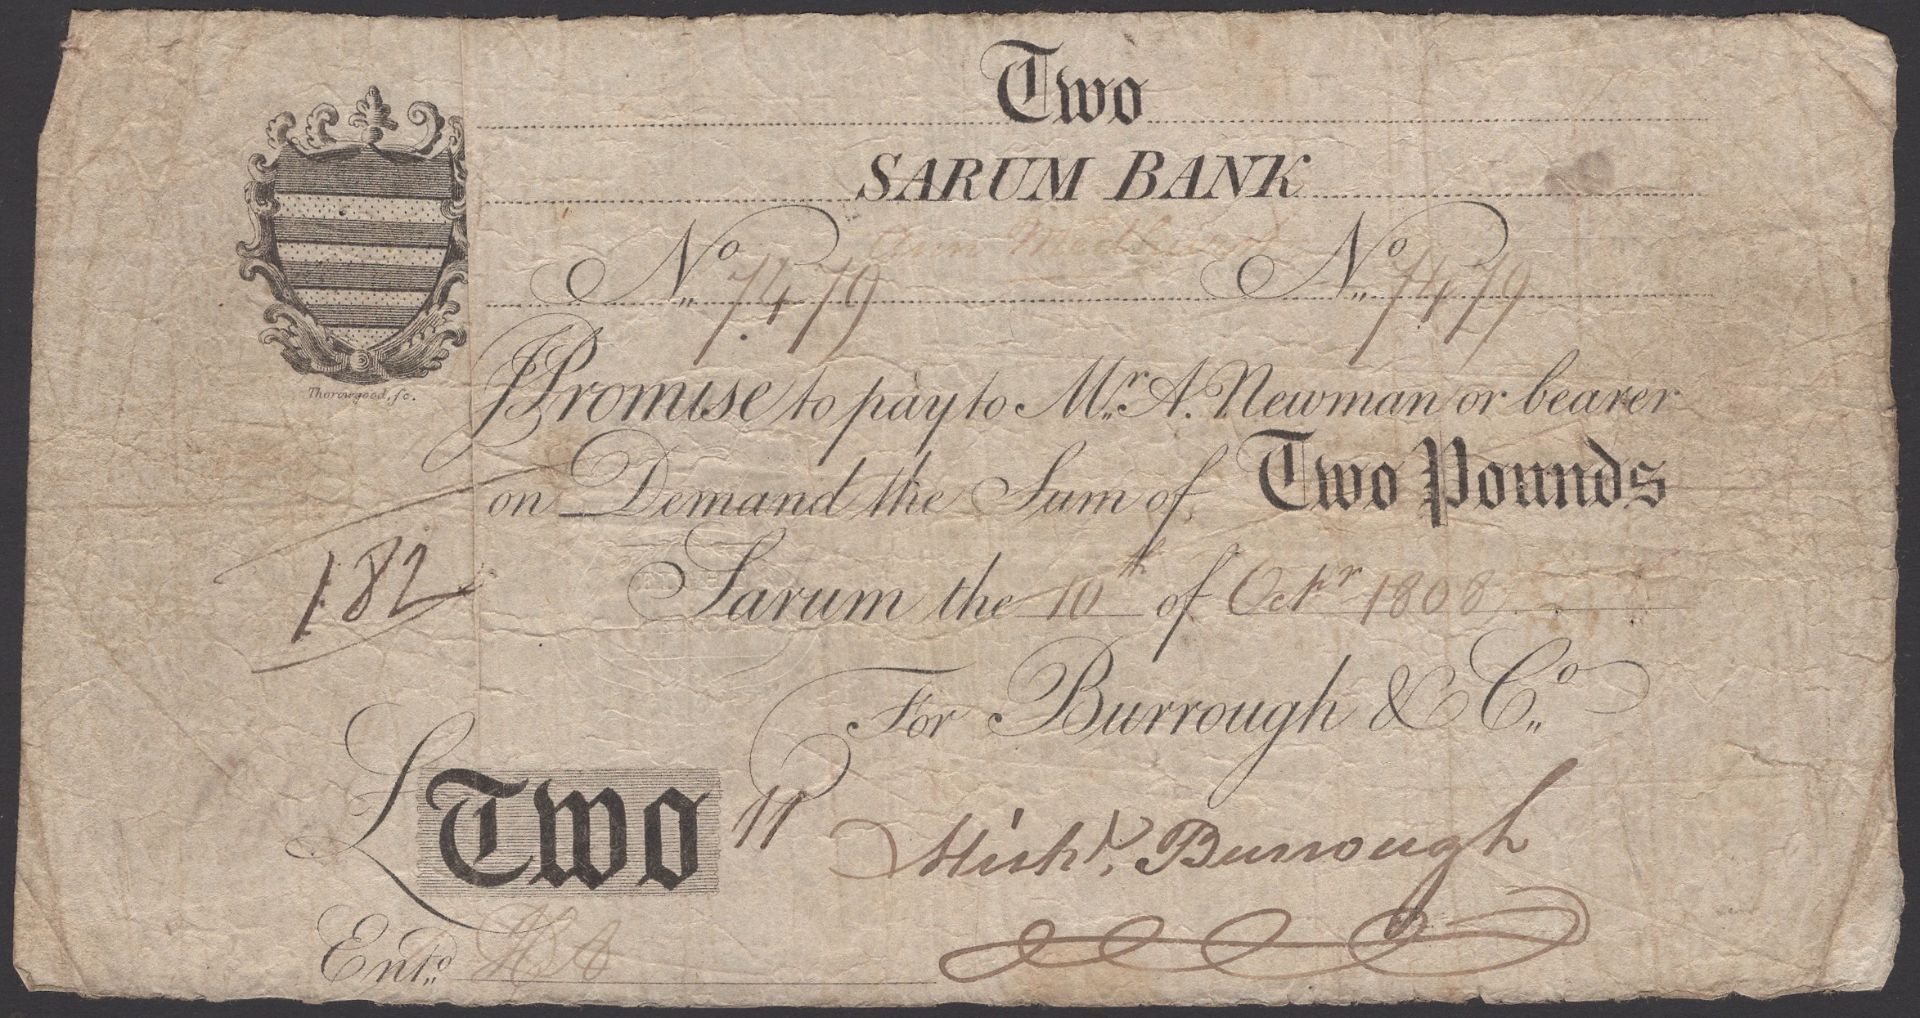 Two
SARUM BANK
No 7479 No 7479
Thorowgood, sc.
I Promise to pay to Mr. A. Newman or bearer
on Demand the Sum of Two Pounds
182
Sarum the 10th of Octr 1808
For Burrough & Co.
£ Two
Michl. Burrough
Entd.